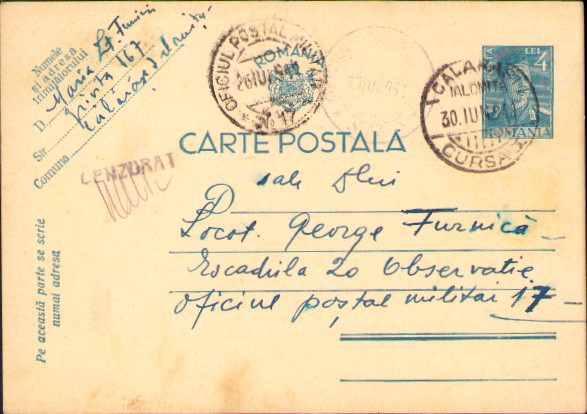 Numele
și adresa
trimițătorului
D. Maria Lt. Furnică
Str. 167
Comuna Călărași Ialomița
OFICIUL POSTAL MILITAR
26 IUL 941
No 17
ROMANIA
11 IUL 941
LEI 4
ROMANIA
CALARASI
IALOMITA
30. IUN 941
CURSA
CARTE POSTALĂ
CENZURAT
sale Dlui
D
Locot. George Furnică
Escadrila 20 Observatie
Oficiul poștal militar 17
Pe această parte se scrie
numai adresa